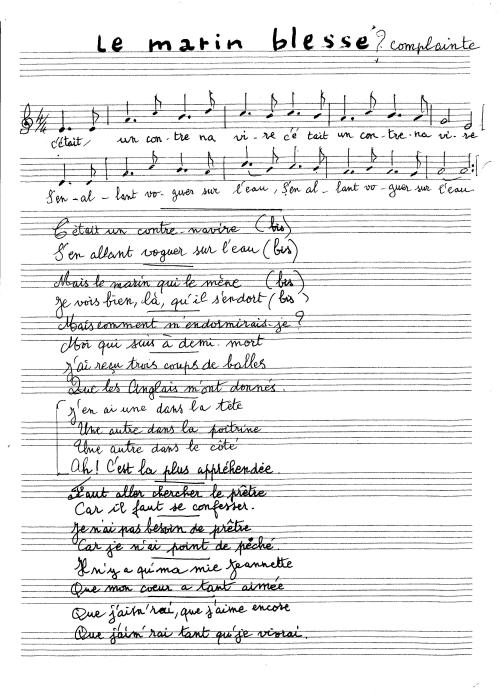 Le marin blessé ? complainte
c'était, un con-tre na vi-re c'é tait un con-tre-na vi-re
S'en-al-lant vo-guer sur l'eau, S'en al-lant vo-guer sur l'eau
C'était un contre-navire (bis)
S'en allant voguer sur l'eau (bis)
Mais le marin qui le mène (bis)
Je vois bien, là, qu'il s'endort (bis)
Mais comment m'endormirais-je ?
Moi qui suis à demi-mort
J'ai reçu trois coups de balles
Que les Anglais m'ont donnés.
J'en ai une dans la tête
Une autre dans la poitrine
Une autre dans le côté
Ah ! C'est la plus appréhendée.
Faut aller chercher le prêtre
Car il faut se confesser.
Je n'ai pas besoin de prêtre
Car je n'ai point de péché.
Il n'y a qu'ma mie Jeannette
Que mon coeur a tant aimée
Que j'aim'rai, que j'aime encore
Que j'aim'rai tant qu'je vivrai.